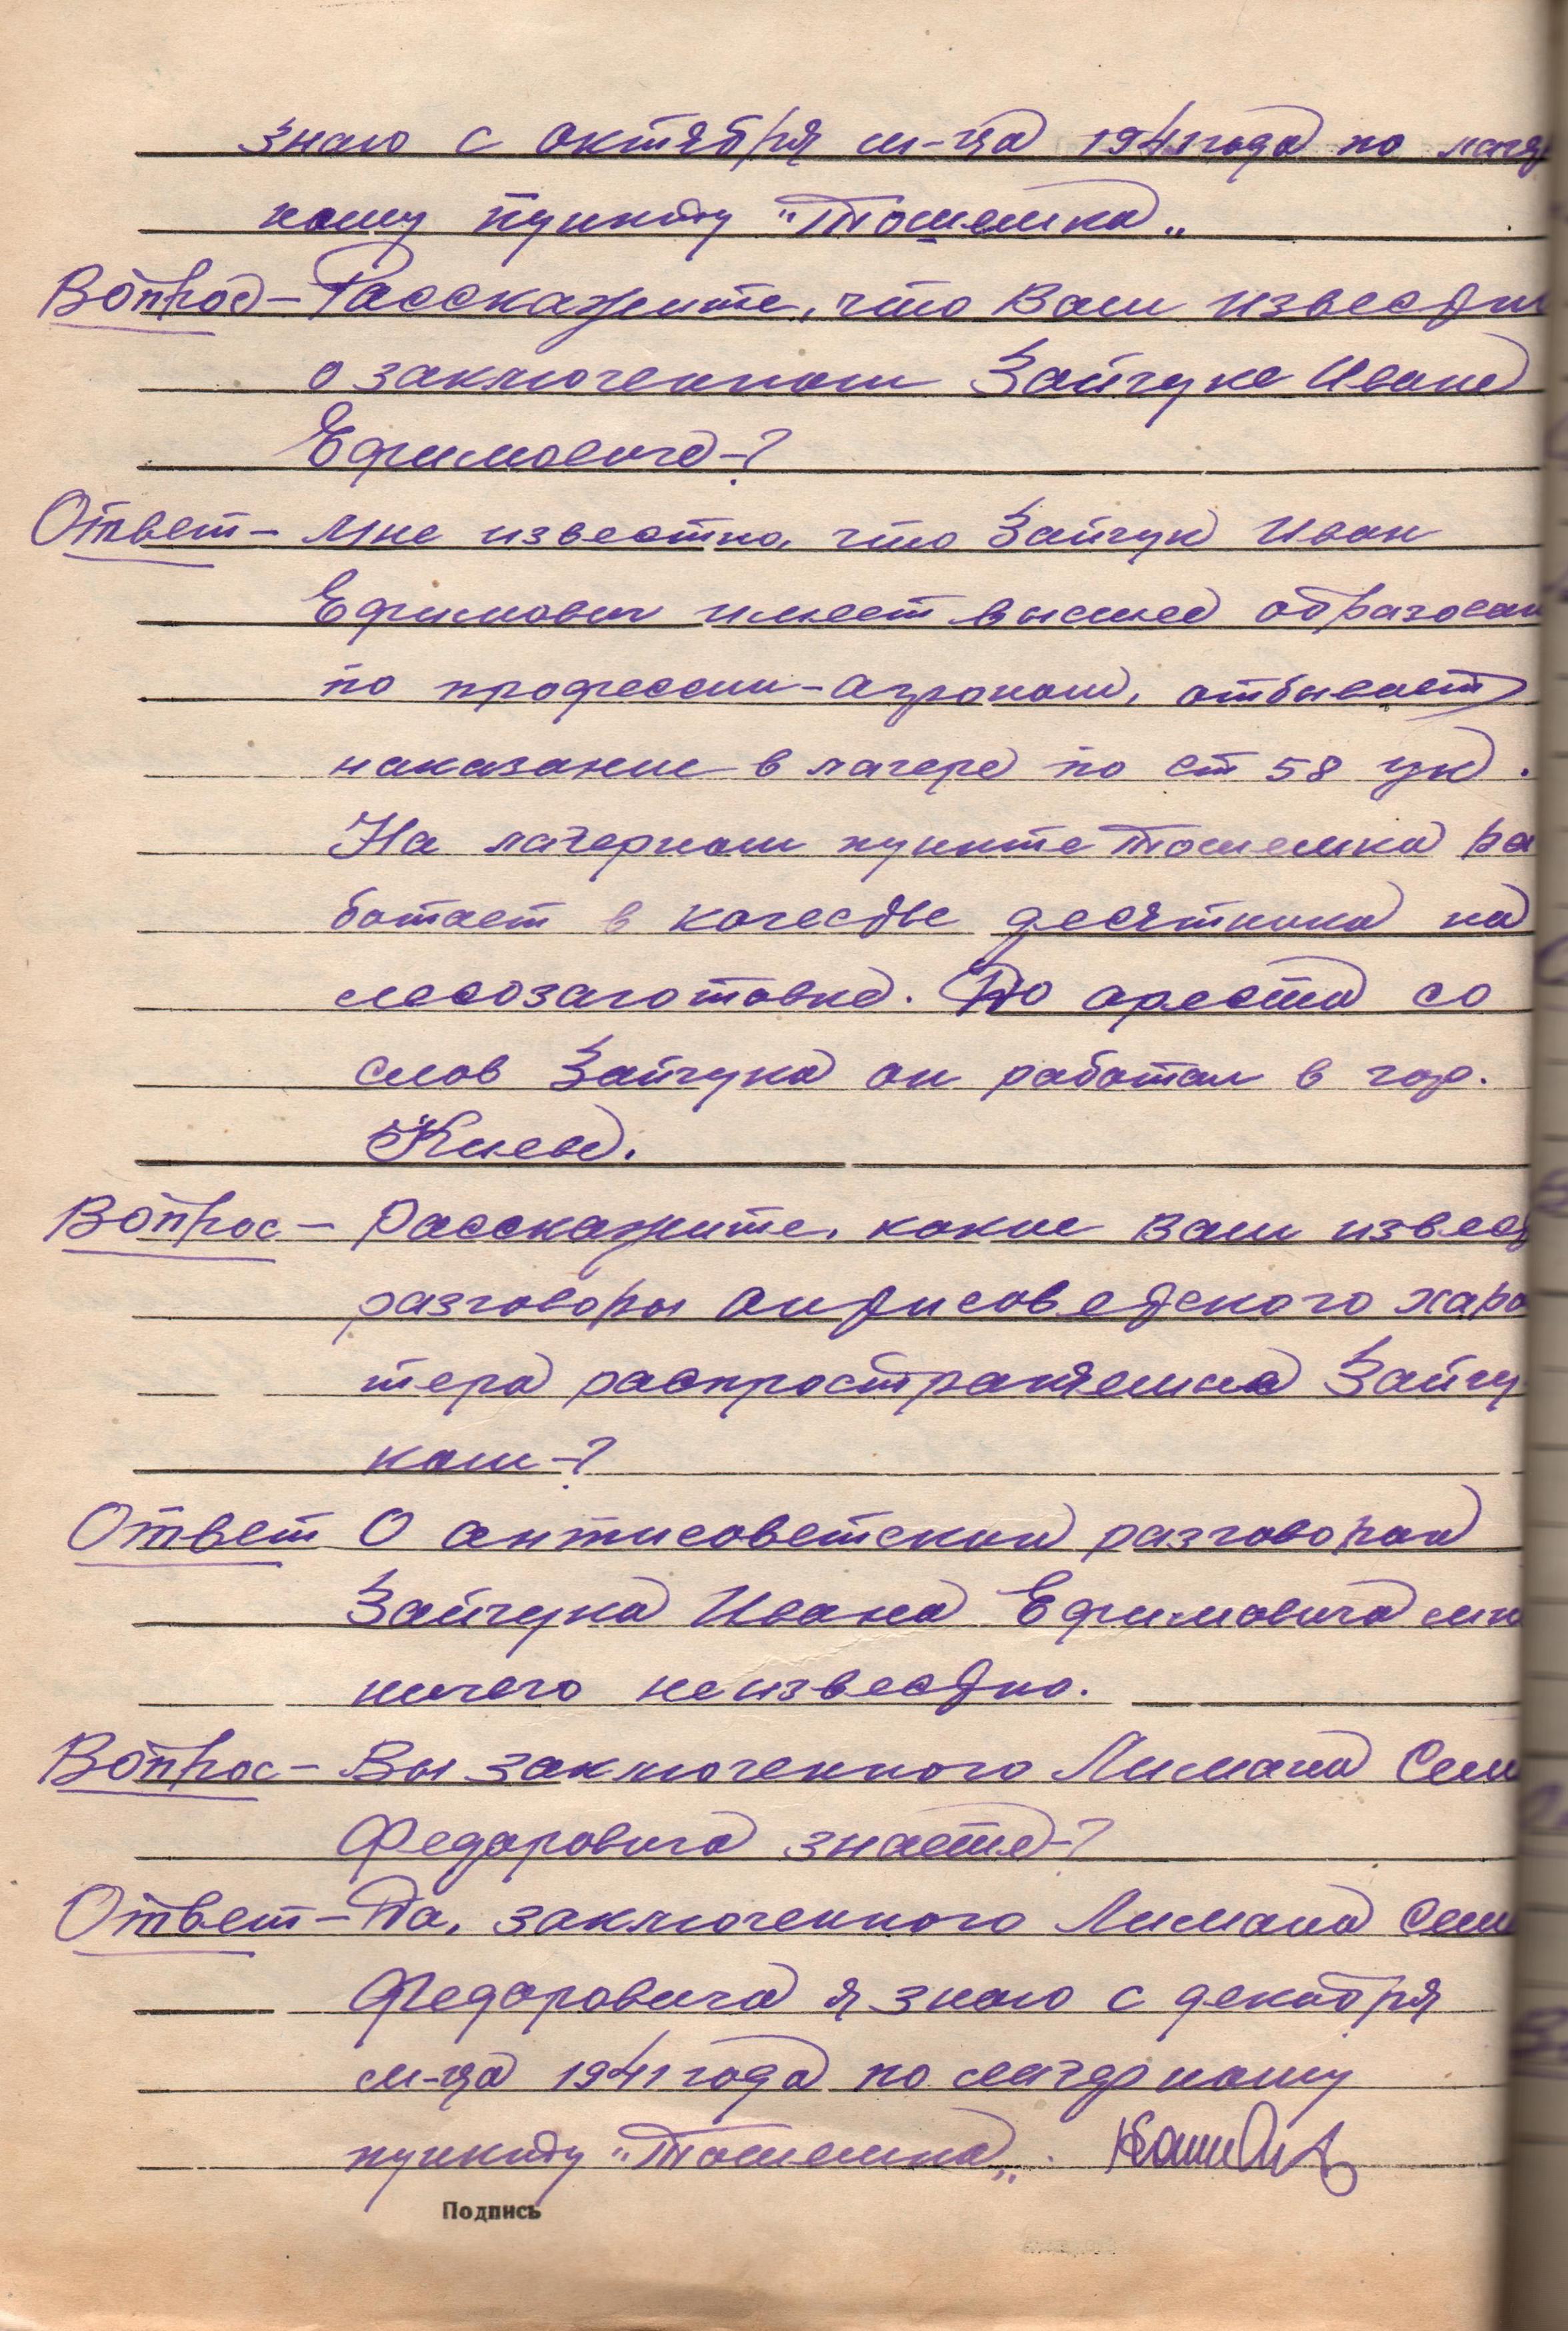 знаю с октября м-ца 1941 года по лагер
ному пункту "Тошемка"
Вопрос - Расскажите, что Вам известн
о заключенном Зайчуке Иване
Ефимовиче-?
Ответ - Мне известно, что Зайчук Иван
Ефимович имеет высшее образован
по профессии - агроном, отбывает
наказание в лагере по ст 58 ук.
На лагерном пункте Тошемка ра
ботает в качестве десятника на
лесозаготовке. До ареста со
слов Зайчука он работал в гор.
Киеве.
Вопрос - Расскажите, какие Вам извест
разговоры антисоветского харак
тера распространяемые Зайчу
ком-?
Ответ О антисоветских разговорах
Зайчука Ивана Ефимовича мне
ничего неизвестно.
Вопрос - Вы заключенного Лимана Сем
Федоровича знаете-?
Ответ - Да, заключенного Лимана Семе
Федоровича я знаю с декабря
м-ца 1941 года по лагерному
пункту "Тошемка".
Подпись